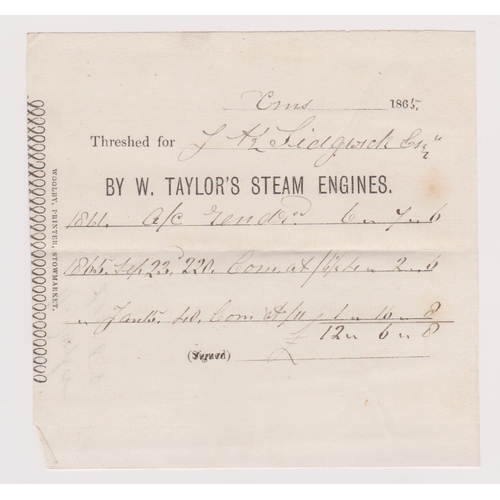 Xms 1865.
Threshed for J Sidgwick Esqr
BY W. TAYLOR'S STEAM ENGINES.
1861. a/c rendrd. 6 „ 7 „ 6
1865. 23d. 220. Coom at 4 „ 2 „ 6
„ Jan 40. Coom at /11 1 „ 16 „ 8
£ 12 „ 6 „ 8
(Signed)
WOOLBY, PRINTER, STOWMARKET.